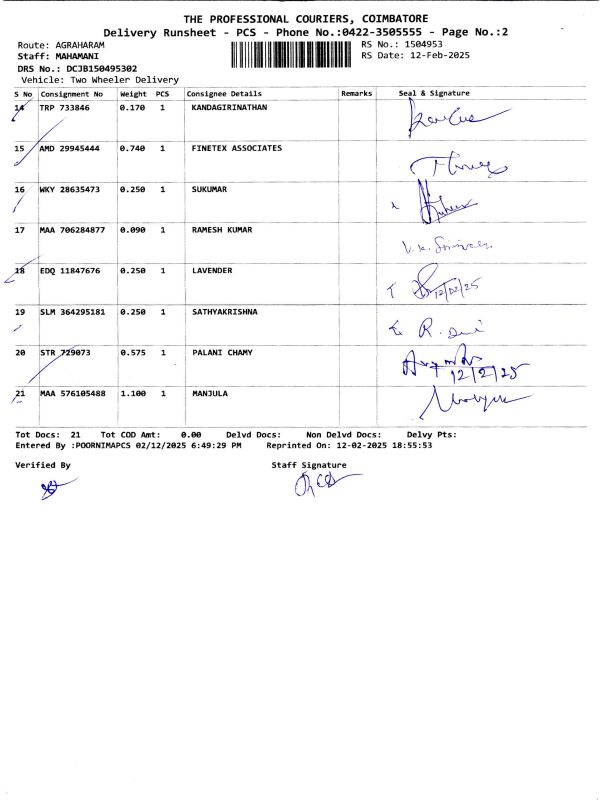 THE PROFESSIONAL COURIERS, COIMBATORE
Delivery Runsheet - PCS - Phone No.:0422-3505555 - Page No.:2
Route: AGRAHARAM RS No.: 1504953
Staff: MAHAMANI RS Date: 12-Feb-2025
DRS No.: DCJB150495302
Vehicle: Two Wheeler Delivery
S No Consignment No Weight PCS Consignee Details Remarks Seal & Signature
14 TRP 733846 0.170 1 KANDAGIRINATHAN
15 AMD 29945444 0.740 1 FINETEX ASSOCIATES
16 WKY 28635473 0.250 1 SUKUMAR
17 MAA 706284877 0.090 1 RAMESH KUMAR
18 EDQ 11847676 0.250 1 LAVENDER 12/02/25
19 SLM 364295181 0.250 1 SATHYAKRISHNA
20 STR 729073 0.575 1 PALANI CHAMY
12/2/25
21 MAA 576105488 1.100 1 MANJULA
Tot Docs: 21 Tot COD Amt: 0.00 Delvd Docs: Non Delvd Docs: Delvy Pts:
Entered By :POORNIMAPCS 02/12/2025 6:49:29 PM Reprinted On: 12-02-2025 18:55:53
Verified By Staff Signature